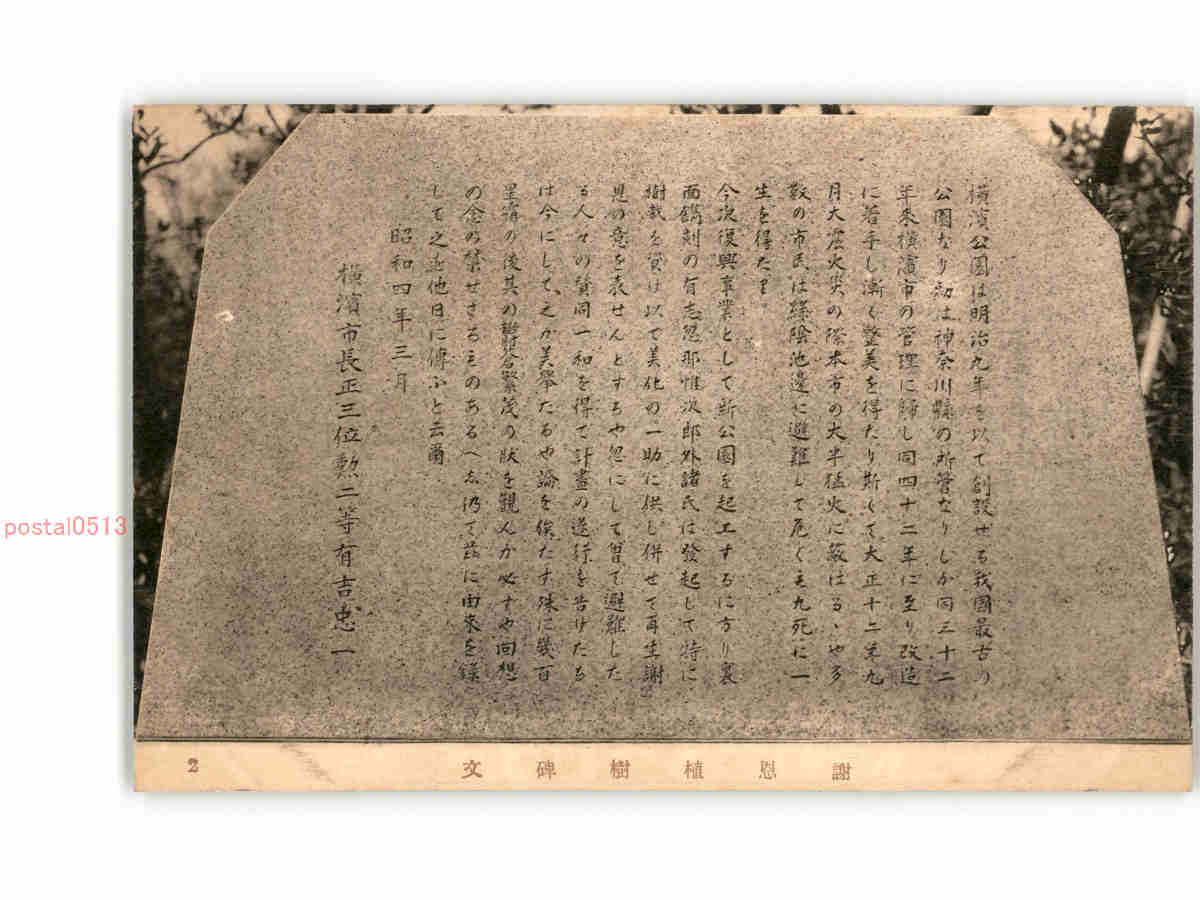 横濱公園は明治九年を以て創設せる我國最古の
公園なり初は神奈川縣の所管なりしか同三十二
年來横濱市の管理に歸し同四十二年に至り改造
に着手し漸く整美を得たり斯くて大正十二年九
月大震火災の際本市の大半猛火に蔽はるゝや多
數の市民は綠陰池邊に避難して危くも九死に一
生を得たり
今次復興事業として新公園を起工するに方り裏
面鐫刻の有志忽那惟次郎外諸氏は發起して特に
樹栽を貸け以て美化の一助に供し併せて再生謝
恩の意を表せんとするや忽にして曾て避難した
る人々の賛同一和を得て計畫の遂行を告けたる
は今にして之か美擧たるや論を俟たす殊に幾百
星霜の後其の鬱蒼繁茂の狀を觀んか必すや回想
の念の禁せさるものあるへし仍て茲に由來を録
して之を他日に傳ふと云爾
昭和四年三月
横濱市長正三位勲二等有吉忠一
謝恩植樹碑文
2
postal0513